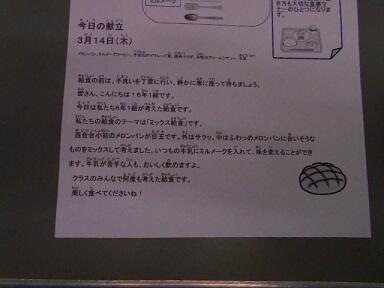 ミルメーク
き方も大切な食事マ
ナーのひとつになりま
す。
今日の献立
3月14日(木)
給食の前は、手洗いを丁寧に行い、静かに席に座って待ちましょう。
皆さん、こんにちは!6年1組です。
今日は私たち6年1組が考えた給食です。
私たちの給食のテーマは「ミックス給食」です。
百合台小初のメロンパンが目玉です。外はサクッ、中はふわっのメロンパンに合いそうな
ものをミックスして考えました。いつもの牛乳にミルメークを入れて、味を変えることができ
ます。牛乳が苦手な人も、おいしく飲めますよ。
クラスのみんなで何度も考えた給食です。
楽しく食べてくださいね!